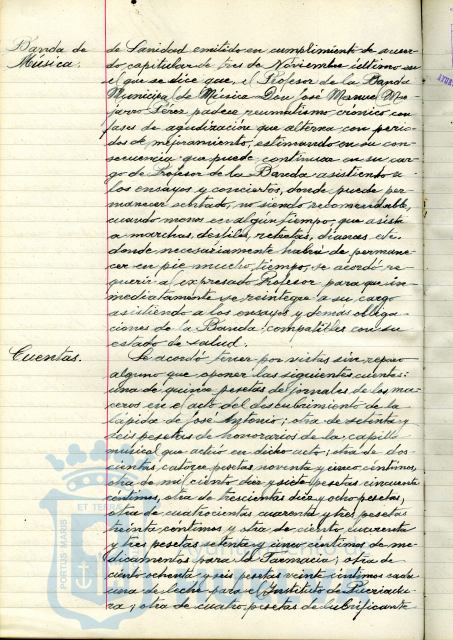 Banda de
Música.
de Sanidad emitido en cumplimiento de acuer-
do capitular de tres de Noviembre último en
el que se dice que, el Profesor de la Banda
Municipal de Música Don José Manuel
Pérez padece reumatismo crónico con
fases de agudización que alterna con perio-
dos de mejoramiento, estimando en su con-
secuencia que puede continuar en su car-
go de Profesor de la Banda asistiendo a
los ensayos y conciertos, donde puede per-
manecer sentado, no siendo recomendable,
cuando menos en algún tiempo, que asista
a marchas, desfiles, retretas, dianas etc.
donde necesariamente habrá de permane-
cer en pie mucho tiempo, se acordó re-
querir al expresado Profesor para que in-
mediatamente se reintegre a su cargo
asistiendo a los ensayos y demás obliga-
ciones de la Banda compatibles con su
estado de salud.
Cuentas.
Se acordó tener por vistas sin reparo
alguno que oponer las siguientes cuentas:
una de quince pesetas de jornales de los ma-
ceros en el acto del descubrimiento de la
lápida de José Antonio; otra de setenta y
seis pesetas de honorarios de la capilla
musical que actuó en dicho acto; otra de dos-
cientas catorce pesetas noventa y cinco céntimos,
otra de mil ciento diez y siete pesetas cincuenta
céntimos, otra de trescientas diez y ocho pesetas,
otra de cuatrocientas cuarenta y tres pesetas
treinta céntimos y otra de ciento cuarenta
y tres pesetas setenta y cinco céntimos de me-
dicamentos para la Farmacia; otra de
ciento ochenta y seis pesetas veinte céntimos cada
una de leche para el Instituto de Puericultu-
ra; otra de cuatro pesetas de lubrificante
ET TERRA
PORTUS MARIS
Ayuntamiento de